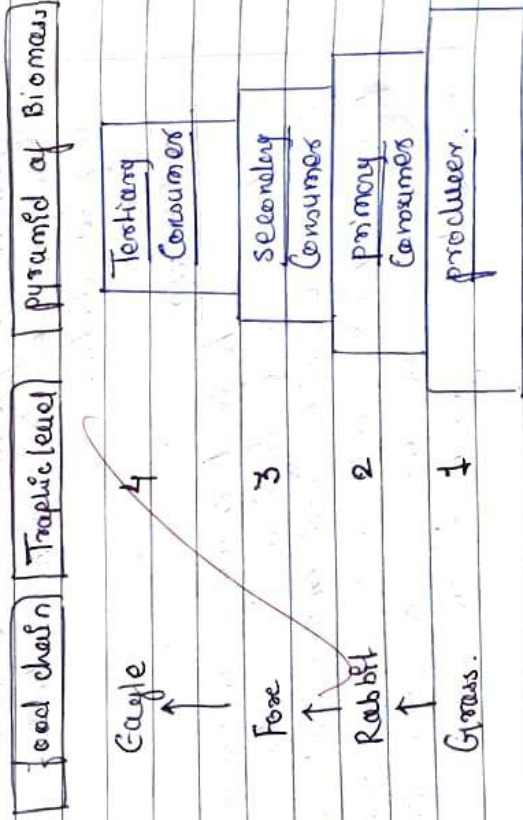 food chain Trophic level pyramid of Biomass
Eagle 4 Tertiary
Consumer
Fox 3 secondary
Consumer
Rabbit 2 primary
Consumer
Grass. 1 producer.